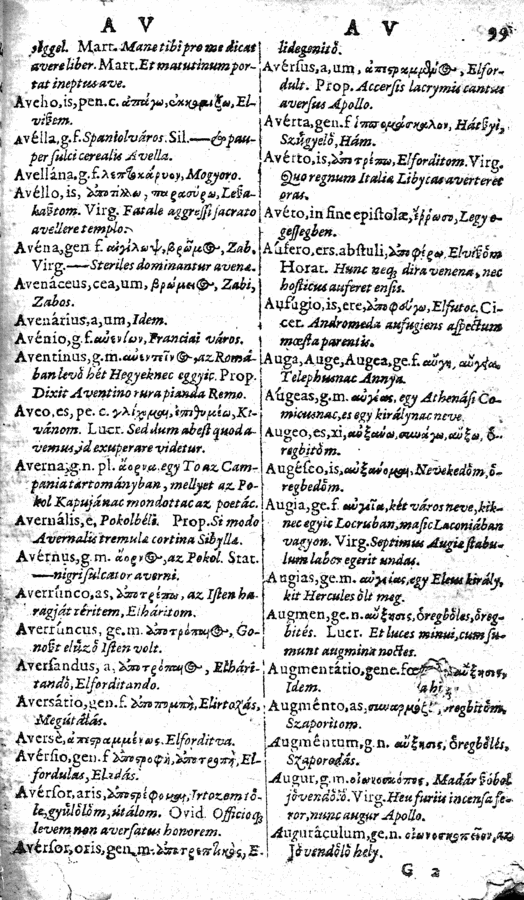 A V
ẏggel. Mart. Mane tibi pro me dicat
avere liber. Mart. Et matutinum por-
tat ineptus ave.
Aveho, is, pen. c. ἀπάγω, El-
viszem.
Avélla, g.f. Spaniol város. Sil. — & pau-
per sulci cerealis Avella.
Avellána, g.f. λεπτοκάρυον, Mogyoro.
Avéllo, is, ἀποτίλλω,
Virg. Fatale aggressi sacrato
avellere templo.
Avéna, gen f. αἰγίλωψ, βρῶμος, Zab.
Virg. — Steriles dominantur avenæ.
Avenáceus, cea, um, Zabi,
Zabos.
Avenárius, a, um, Idem.
Avénio, g.f. Franciai város.
Aventinus, g.m. az Romá-
ban levő hét Hegyeknec eggyic. Prop.
Dixit Aventino rura pianda Remo.
Aveo, es, pe. c. γλίχομαι, ἐπιθυμέω, Ki-
vánom. Lucr. Sed dum abest quod a-
vemus, id exuperare videtur.
Averna, g.n. pl. ἄορνα. egy To az Cam-
pania tartományban, mellyet az Po-
kol Kapujánac mondottac az poëtác.
Avernális, e, Pokolbéli. Prop. Si modo
Avernalis tremulæ cortina Sibyllæ.
Avérnus, g.m. ἄορνος, az Pokol. Stat.
— nigri sulcator averni.
Averrúnco, as, ἀποτρέπω, az Isten ha-
ragját téritem, Elháritom.
Averrúncus, ge.m. ἀποτρόπαιος, Go-
noszt elűző Isten volt.
Aversandus, a, ἀποτρόπαιος, Elhári-
tandó, Elforditando.
Aversátio, gen.f. ἀποπομπὴ, Elirtozás,
Megútálás.
Aversè, ἀπεστραμμένως. Elforditva.
Avérsio, gen.f. ἀποστροφὴ, ἀποτροπὴ, El-
fordulas, Elidás.
Avérsor, aris, ἀποστρέφομαι, Irtozom tő-
le, gyűlölöm, útálom. Ovid. Officioq;
levem non aversatus honorem.
Avérsor, oris, gen. m. E-
A V
99
lidegenitő.
Avérsus, a, um, Elfor-
dult. Prop. Accersis lacrymis cantus
aversus Apollo.
Avérta, gen.f.
Szűgyelő, Hám.
Avérto, is, ἀποτρέπω, Elforditom. Virg.
Quo regnum Italiæ Libycas averteret
oras.
Avéto, in fine epistolæ, ἔῤῥωσο, Legy e-
gessegben.
Áufero, ers. abstuli, ἀποφέρω. Elviszöm
Horat. Hunc neq; dira venena, nec
hosticus auferet ensis.
Aufúgio, is, ere, ἀποφεύγω, Elfutoc. Ci-
cer. Andromeda aufugiens aspectum
mœsta parentis.
Auga, Auge, Augea, ge.f.
Telephusnac Annya.
Áugeas, g.m. egy Athenási Co-
micusnac, es egy királynac neve.
Augeo, es, xi, αὐξάνω, συνάγω, αὔξω, ő-
regbitőm.
Augésco, is, αὐξάνομαι, Nevekedőm, ő-
regbedőm.
Augia, ge.f. két város neve, kik-
nec egyic Locruban, masic Laconiában
vagyon. Virg. Septimus Augiæ stabu-
lum labor egerit undas.
Augias, ge.m. αὐγείας, egy Eleus király,
kit Hercules ölt meg.
Augmen, ge.n. αὔξησις, őregbőlés, őreg-
bités. Lucr. Et luces minui, cum su-
munt augmina noctes.
Augmentátio, gene.fœ αὔξησις,
Idem.
Augménto, as, regbitőm,
Szaporitom.
Augméntum, g.n. αὔξησις, őregbőlés,
Szaporodás.
Augur, g.m. οἰωνοσκόπος, Madár szóból
jővendőlő. Virg. Heu furiis incensa fe-
ror, nunc augur Apollo.
Auguráculum, ge.n. οἰωνοσκοπεῖον, az
Jővendőlő hely.
G 2